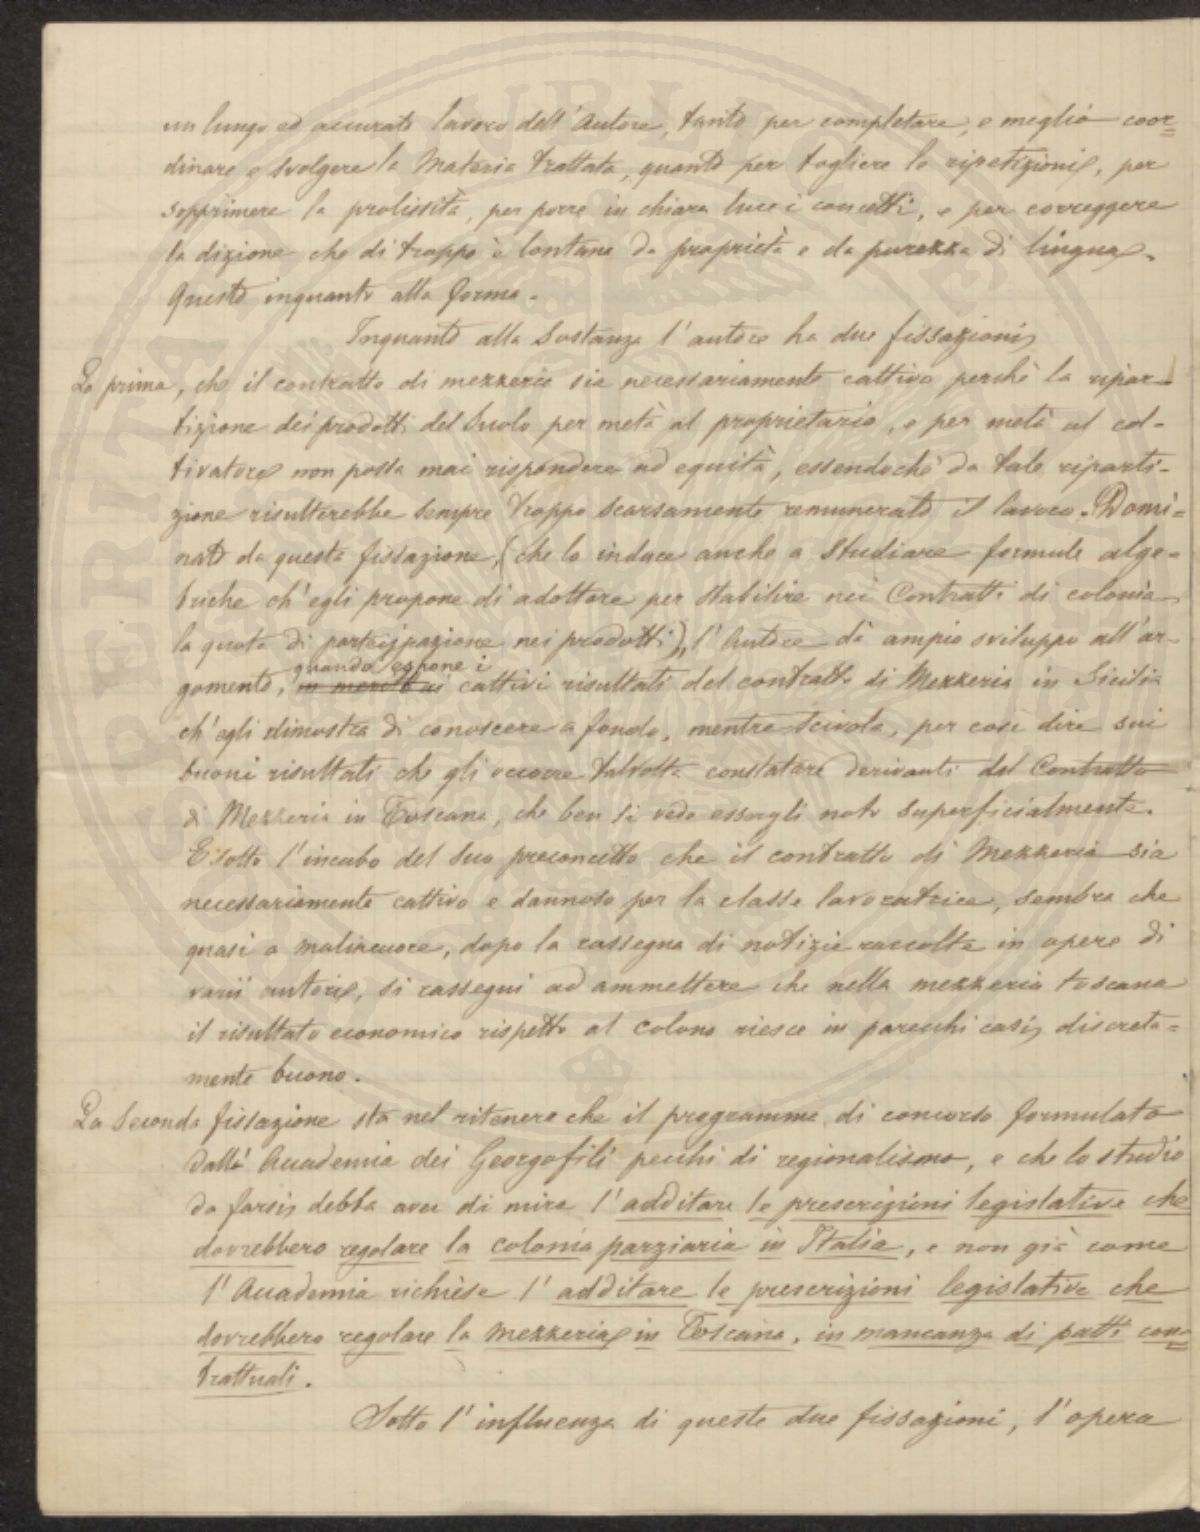 un lungo ed accurato lavoro dell'Autore, tanto per completare, e meglio coor=
dinare e svolgere la Materia trattata, quanto per togliere le ripetizioni, per
sopprimere la prolissità, per porre in chiara luce i concetti, e per correggere
la dizione che di troppo è lontana da proprietà e da purezza di lingua.
Questo inquanto alla forma.
Inquanto alla Sostanza l'autore ha due fissazioni
La prima, che il contratto di mezzeria sia necessariamente cattivo perchè la ripar-
tizione dei prodotti del Suolo per metà al proprietario, e per metà al col-
tivatore non possa mai rispondere ad equità, essendochè da tale riparti-
zione risulterebbe sempre troppo scarsamente remunerato il lavoro. Domi=
nato da questa fissazione, (che lo induce anche a Studiare formule alge=
briche ch'egli propone di adottare per stabilire nei Contratti di colonia
la quota di partecipazione nei prodotti), l'Autore dà ampio sviluppo all'ar-
quando espone i
gomento, in merito ai cattivi risultati del contratto di Mezzeria in Sicilia
ch'egli dimostra di conoscere a fondo, mentre scivola, per così dire sui
buoni risultati che gli occorre talvolta constatare derivanti dal Contratto
di Mezzeria in Toscana, che ben si vede essergli noto superficialmente.
E sotto l'incubo del suo preconcetto che il contratto di Mezzeria sia
necessariamente cattivo e dannoso per la classe lavoratrice, sembra che
quasi a malincuore, dopo la rassegna di notizie raccolte in opere di
varii autori, si rassegni ad ammettere che nella mezzeria toscana
il risultato economico rispetto al colono riesce in parecchi casi, discreta=
mente buono.
La Seconda fissazione sta nel ritenere che il programma di concorso formulato
dalla Accademia dei Georgofili pecchi di regionalismo, e che lo studio
da farsi debba aver di mira l'additare le prescrizioni legislative che
dovrebbero regolare la colonia parziaria in Italia, e non già come
l'Accademia richiese l'additare le prescrizioni legislative che
dovrebbero regolare la Mezzeria in Toscana, in mancanza di patti con=
trattuali.
Sotto l'influenza di queste due fissazioni, l'opera